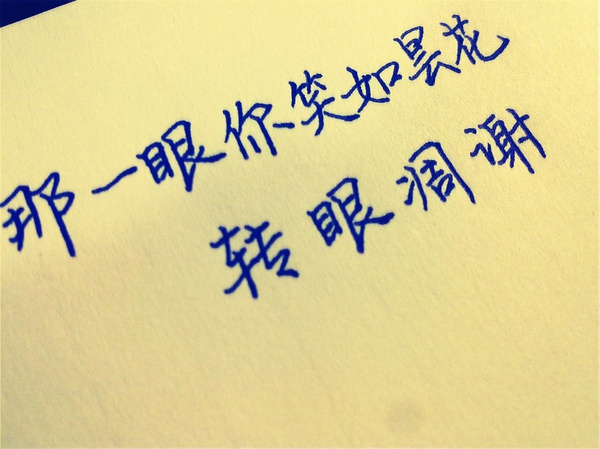 那一眼你笑如昙花
转眼凋谢